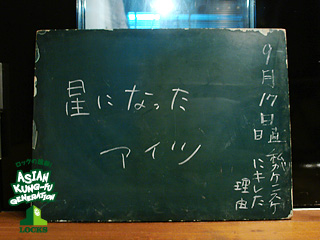 星になった
アイツ
9月17日
私がケンスケ
にキレた
理由
ロックの殿堂
ASIAN
KUNG-FU
GENERATION
LOCKS!